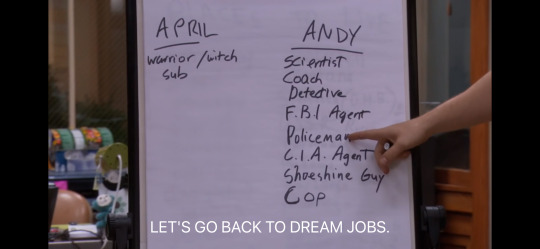 APRIL
warrior/witch
sub
ANDY
Scientist
Coach
Detective
F.B.I Agent
Policeman
C.I.A. Agent
Shoeshine Guy
COP
LET'S GO BACK TO DREAM JOBS.